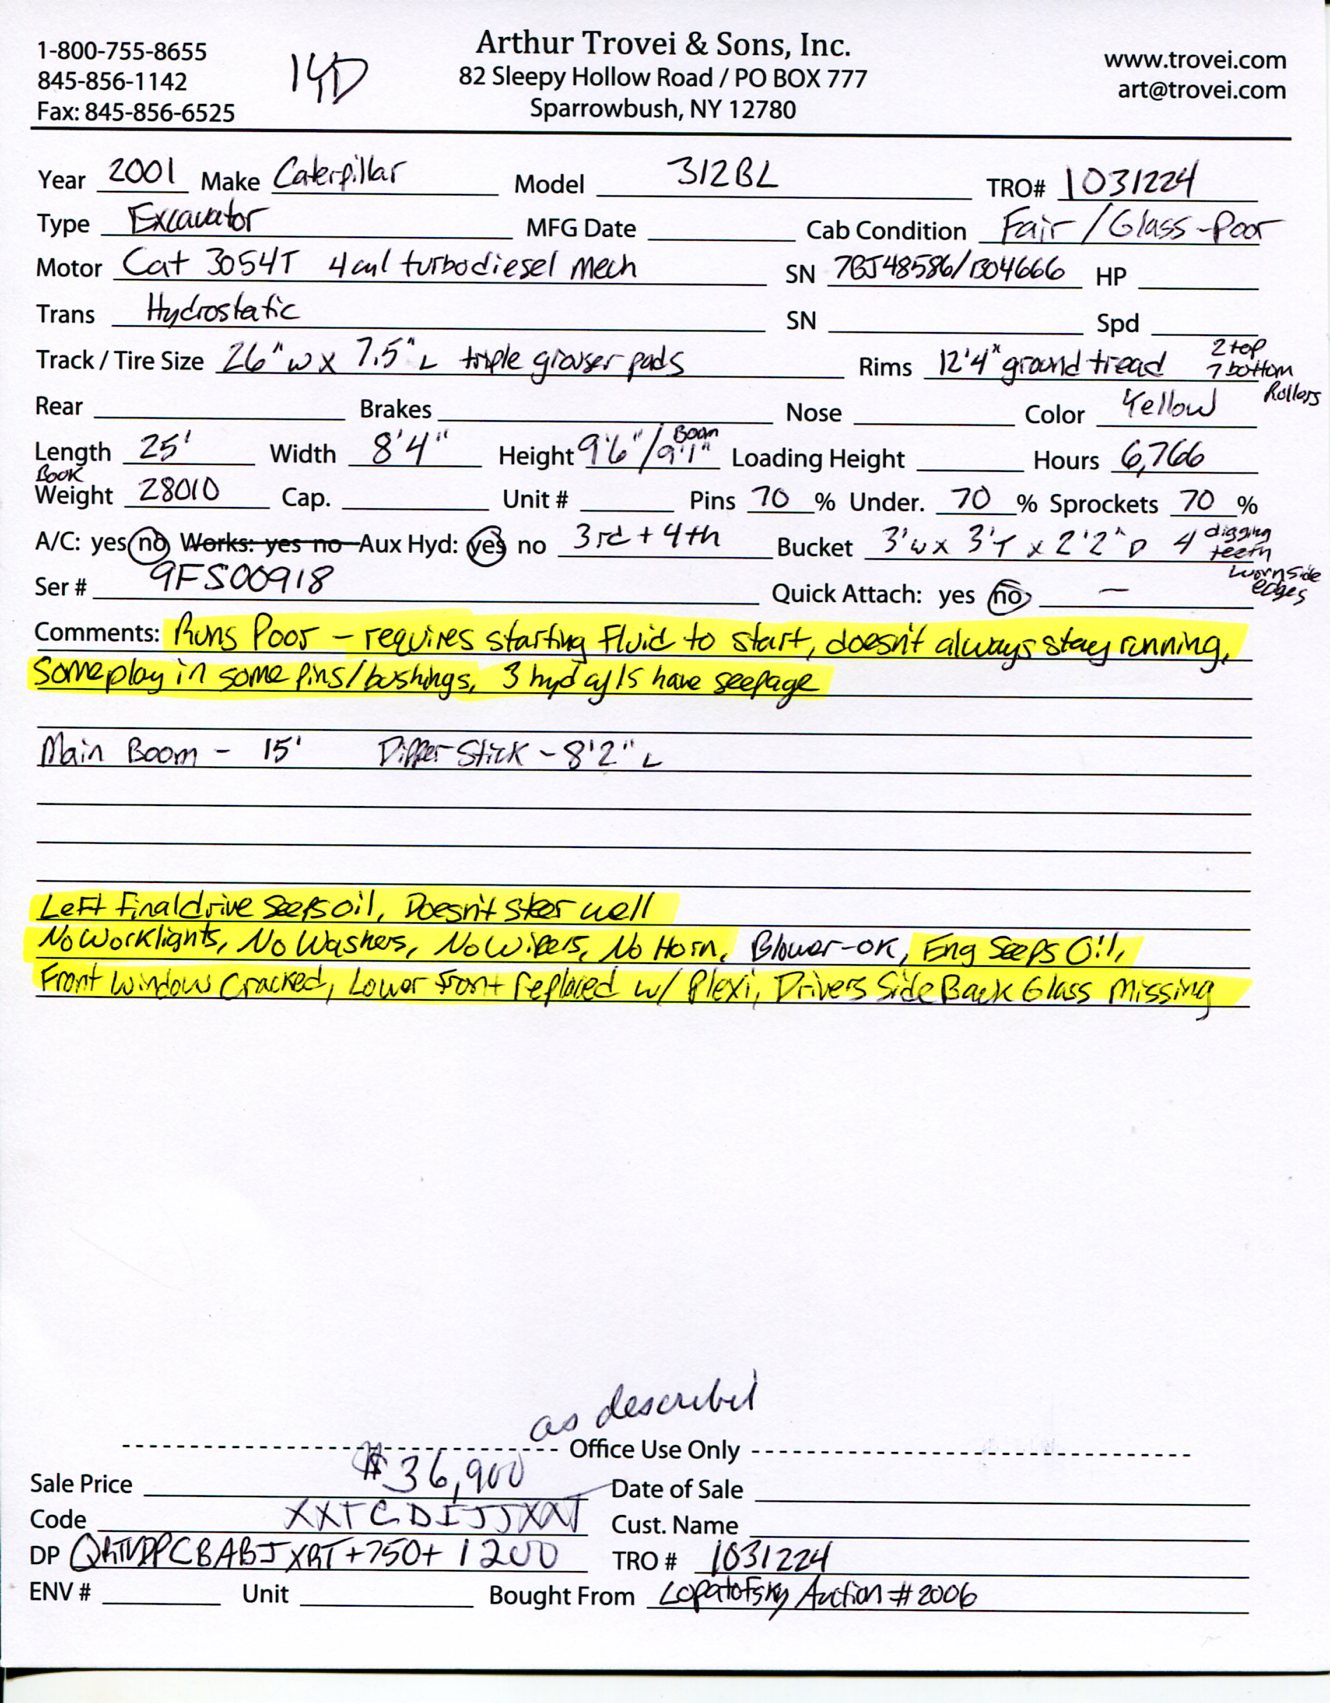 1-800-755-8655
845-856-1142
Fax: 845-856-6525
1YD
Arthur Trovei & Sons, Inc.
82 Sleepy Hollow Road / PO BOX 777
Sparrowbush, NY 12780
www.trovei.com
art@trovei.com
Year 2001 Make Caterpillar Model 312BL TRO# 1031224
Type Excavator MFG Date Cab Condition Fair / Glass-Poor
Motor Cat 3054T 4cyl turbodiesel mech SN 7BJ48586/1304666 HP
Trans Hydrostatic SN Spd
Track / Tire Size 26" W x 7.5" L triple grouser pads Rims 12'4" ground tread 2 top 7 bottom Rollers
Rear Brakes Nose Color Yellow
Length 25' Width 8'4" Height 9'6" / 9'1" Boom Loading Height Hours 6,766
Book Weight 28010 Cap. Unit # Pins 70 % Under. 70 % Sprockets 70 %
A/C: yes no Works: yes no Aux Hyd: yes no 3rd + 4th Bucket 3'W x 3'T x 2'2"D 4 digging teeth worn side edges
Ser # 9FS00918 Quick Attach: yes no —
Comments: Runs Poor - requires starting fluid to start, doesn't always stay running,
Some play in some pins/bushings, 3 hyd cyls have seepage
Main Boom - 15' Dipper Stick - 8'2" L
Left final drive seeps oil, Doesn't steer well
No Worklights, No Washers, No Wipers, No Horn, Blower-OK, Eng Seeps Oil,
Front Window Cracked, Lower front replaced w/ Plexi, Drivers Side Back Glass Missing
as described
Office Use Only
Sale Price $36,900 Date of Sale
Code XXTCDIJJXXT Cust. Name
DP +750+1200 TRO # 1031224
ENV # Unit Bought From Lopatofsky Auction #2006